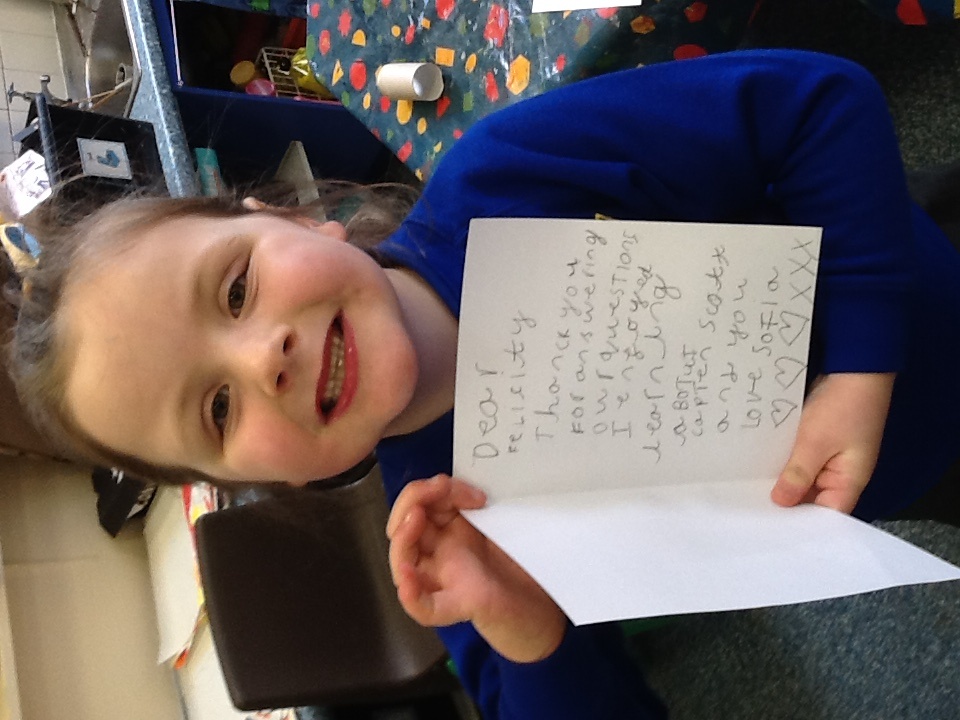 Dear
Felicity
Thanck you
For answering
our questions
I enjoyed
learning
aBout
capten scott
and you
Love SoFia
♡♡♡XXX